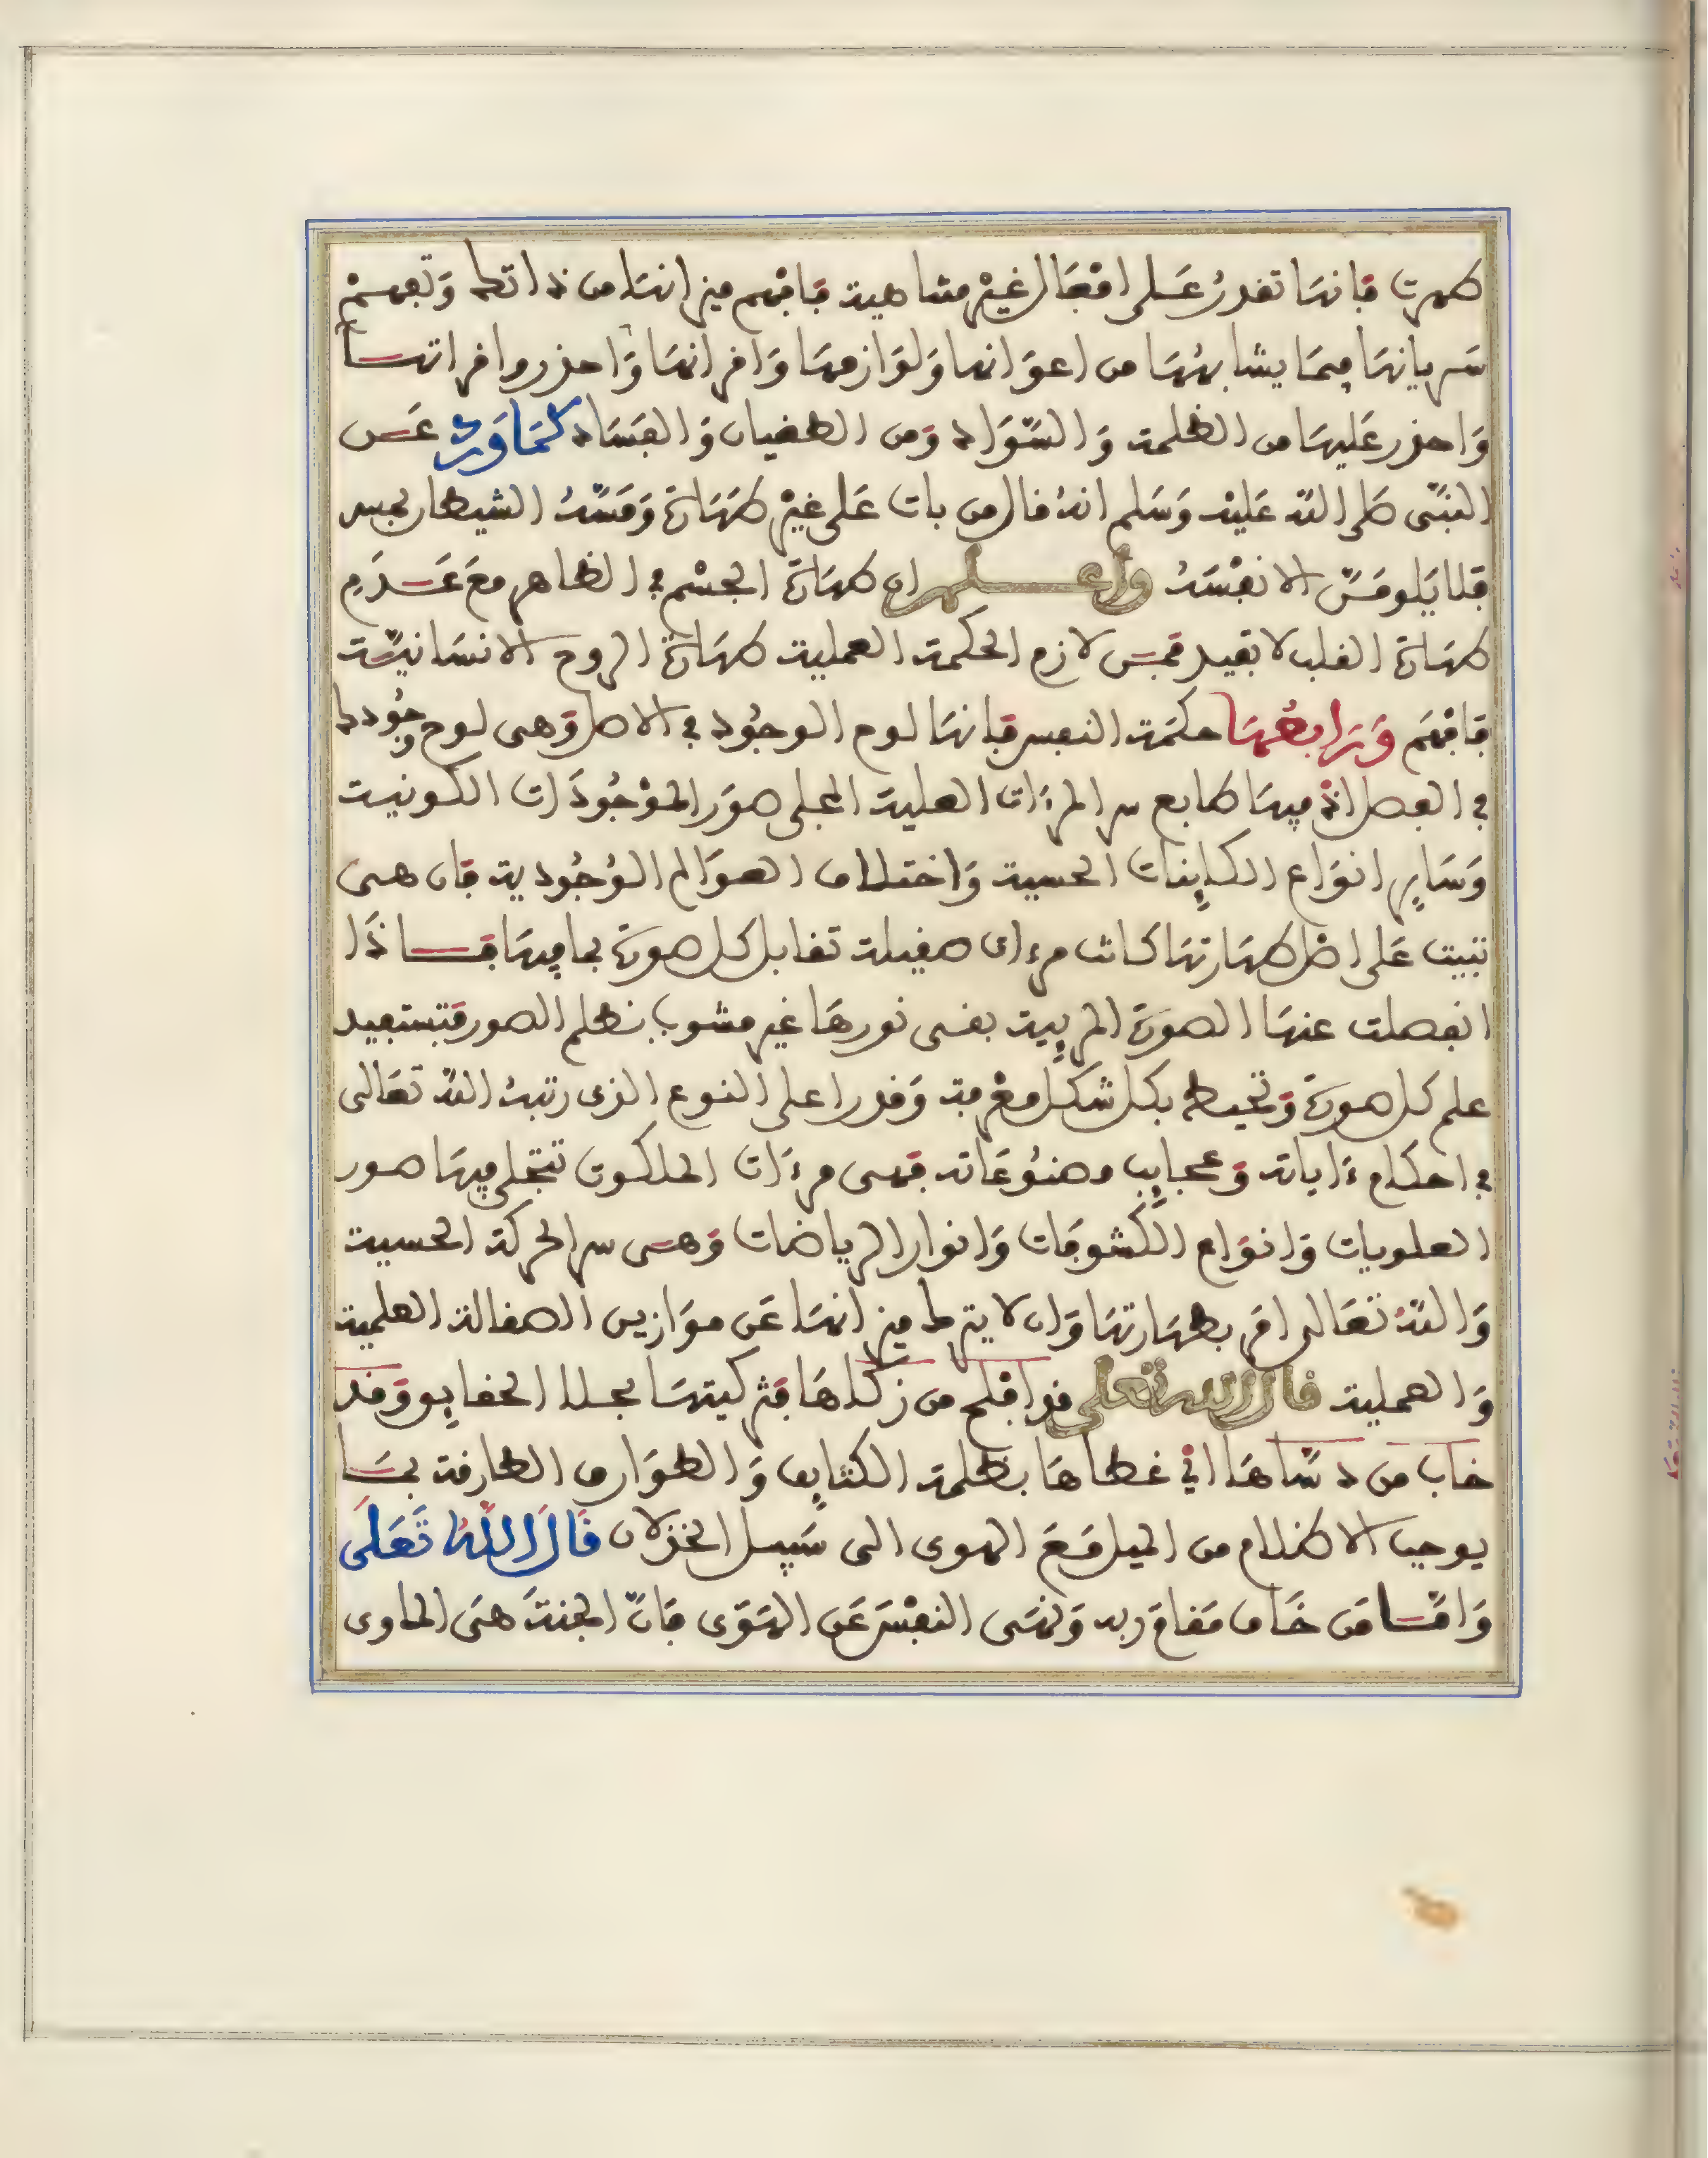 طهرت فانها تقدر على افعال غير متناهية فافهم ميزانها من ذاتها وتفهم
سريانها فيما يشابهها من اعوانها ولوازمها واقرانها واحذروا فراتها
واحذر عليها من الظلمة والسواد ومن الطغيان والفساد كما ورد عن
النبي صلى الله عليه وسلم انه قال من بات على غير طهارة ومسه الشيطان بمس
فلا يلومن الا نفسه واعلم ان طهارة الجسم في الظاهر مع عدم
طهارة القلب لا تفيد فمن لازم الحكمة العملية طهارة الروح الانسانية
فافهم ورابعها حكمة النفس فانها لوح الوجود في الاصل وهي لوح وجودها
في الفصل اذ فيها طابع سر المرءات العلية المجلى صور الموجودات الكونية
وساير انواع الكاينات الحسية واختلاف العوالم الوجودية فان هي
تبتت على اصل طهارتها كانت مرءات صقيلة تقابل كل صورة بما فيها فاذا
انفصلت عنها الصورة المرييت بقى نورها غير مشوب بظلم الصور فتستفيد
علم كل صورة وتحيط بكل شكل معرفة وقدرا على النوع الذى رتبه الله تعالى
في احكام ءاياته وعجايب مصنوعاته فهى مرءات الملكوت تتجلى فيها صور
العلويات وانواع الكشوفات وانوار الرياضات وهى سر الحركة الحسية
والله تعالى امر بطهارتها وان لا يترك ميزانها عن موازين الصقالة العلمية
والعملية قال الله تعلى قد افلح من زكاها فتزكيتها بجلا الحقايق وقد
خاب من دساها اي غطاها بظلمة الكثايف والطوارق الطارقة بما
يوجب الاظلام من الميل مع الهوى الى سبيل الخذلان قال الله تعلى
واما من خاف مقام ربه ونهى النفس عن الهوى فان الجنة هى الماوى